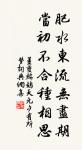 肥水東流無盡期
當初不合種相思
姜夔鷓鴣天元夕有所
夢詞典網書